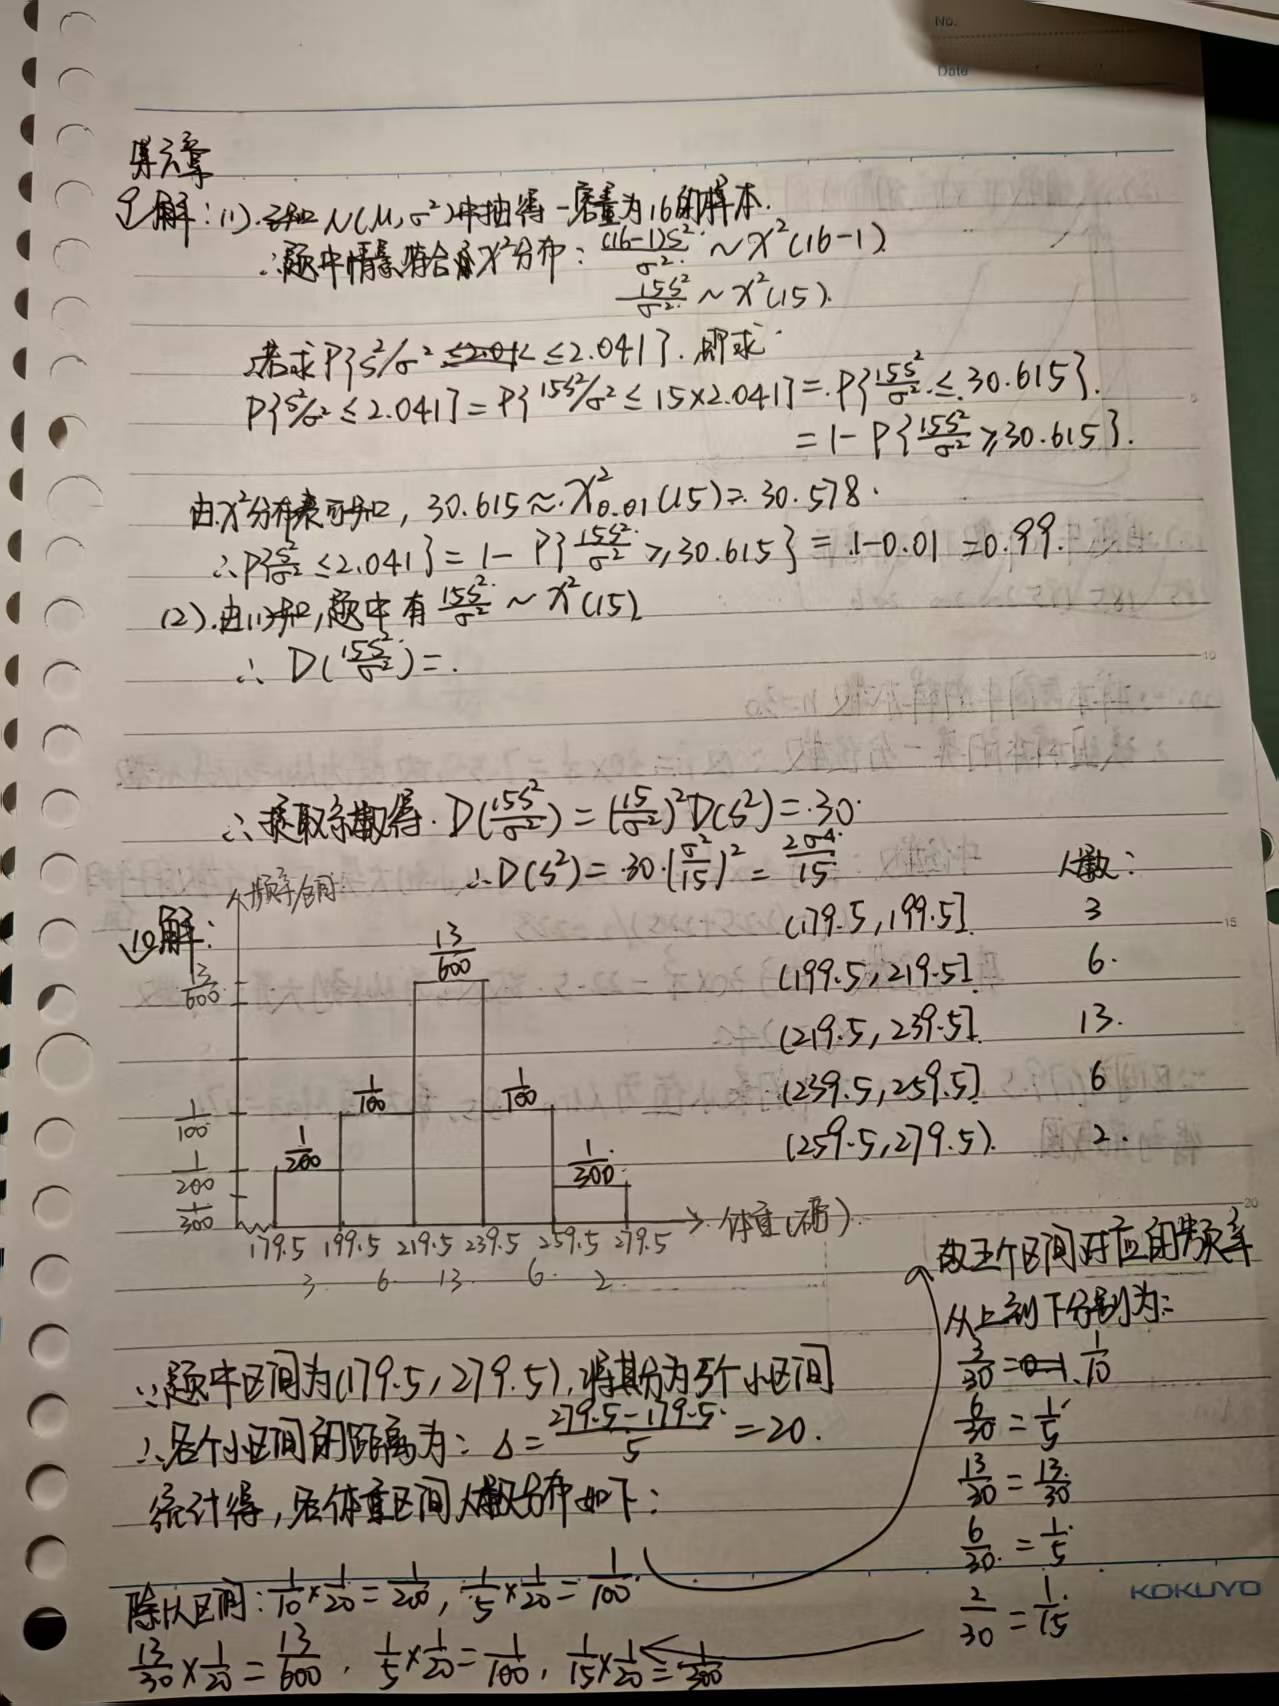 No.
Date
第六章
9 解：(1).已知 N(μ,σ²)中抽得一容量为16的样本.
∴题中情景符合χ²分布：(16-1)S²/σ² ~ χ²(16-1)
15S²/σ² ~ χ²(15).
若求P{S²/σ² ≤2.041}.即求
P{S²/σ² ≤ 2.041} = P{15S²/σ² ≤ 15×2.041} = P{15S²/σ² ≤ 30.615}.
= 1- P{15S²/σ² ≥30.615}.
由χ²分布表可知，30.615≈χ²0.01(15)=30.578.
∴P{S²/σ² ≤2.041} = 1- P{15S²/σ² ≥30.615} = 1-0.01 =0.99.
(2).由(1)知,题中有 15S²/σ² ~ χ²(15)
∴ D(15S²/σ²)=.
∴提取系数得. D(15S²/σ²) = (15/σ²)²D(S²) = 30
∴D(S²) = 30·(σ²/15)² = 2σ⁴/15
10解：
频率/组间
13/600
1/100
1/200
1/300
1/200 1/100 13/600 1/100 1/300
179.5 199.5 219.5 239.5 259.5 279.5 体重(磅)
3 6 13 6 2
人数：
(179.5,199.5] 3
(199.5,219.5] 6
(219.5,239.5] 13.
(239.5,259.5] 6
(259.5,279.5). 2.
∵题中区间为(179.5,279.5),将其分为5个小区间
∴各个小区间的距离为：Δ= (279.5-179.5)/5 =20.
统计得,各体重区间人数分布如下：
故五个区间对应的频率
从上到下分别为：
3/30 = 1/10
6/30 = 1/5
13/30 = 13/30
6/30 = 1/5
2/30 = 1/15
除以区间：1/10×1/20=1/200, 1/5×1/20=1/100
13/30×1/20=13/600, 1/5×1/20=1/100, 1/15×1/20=1/300
KOKUYO